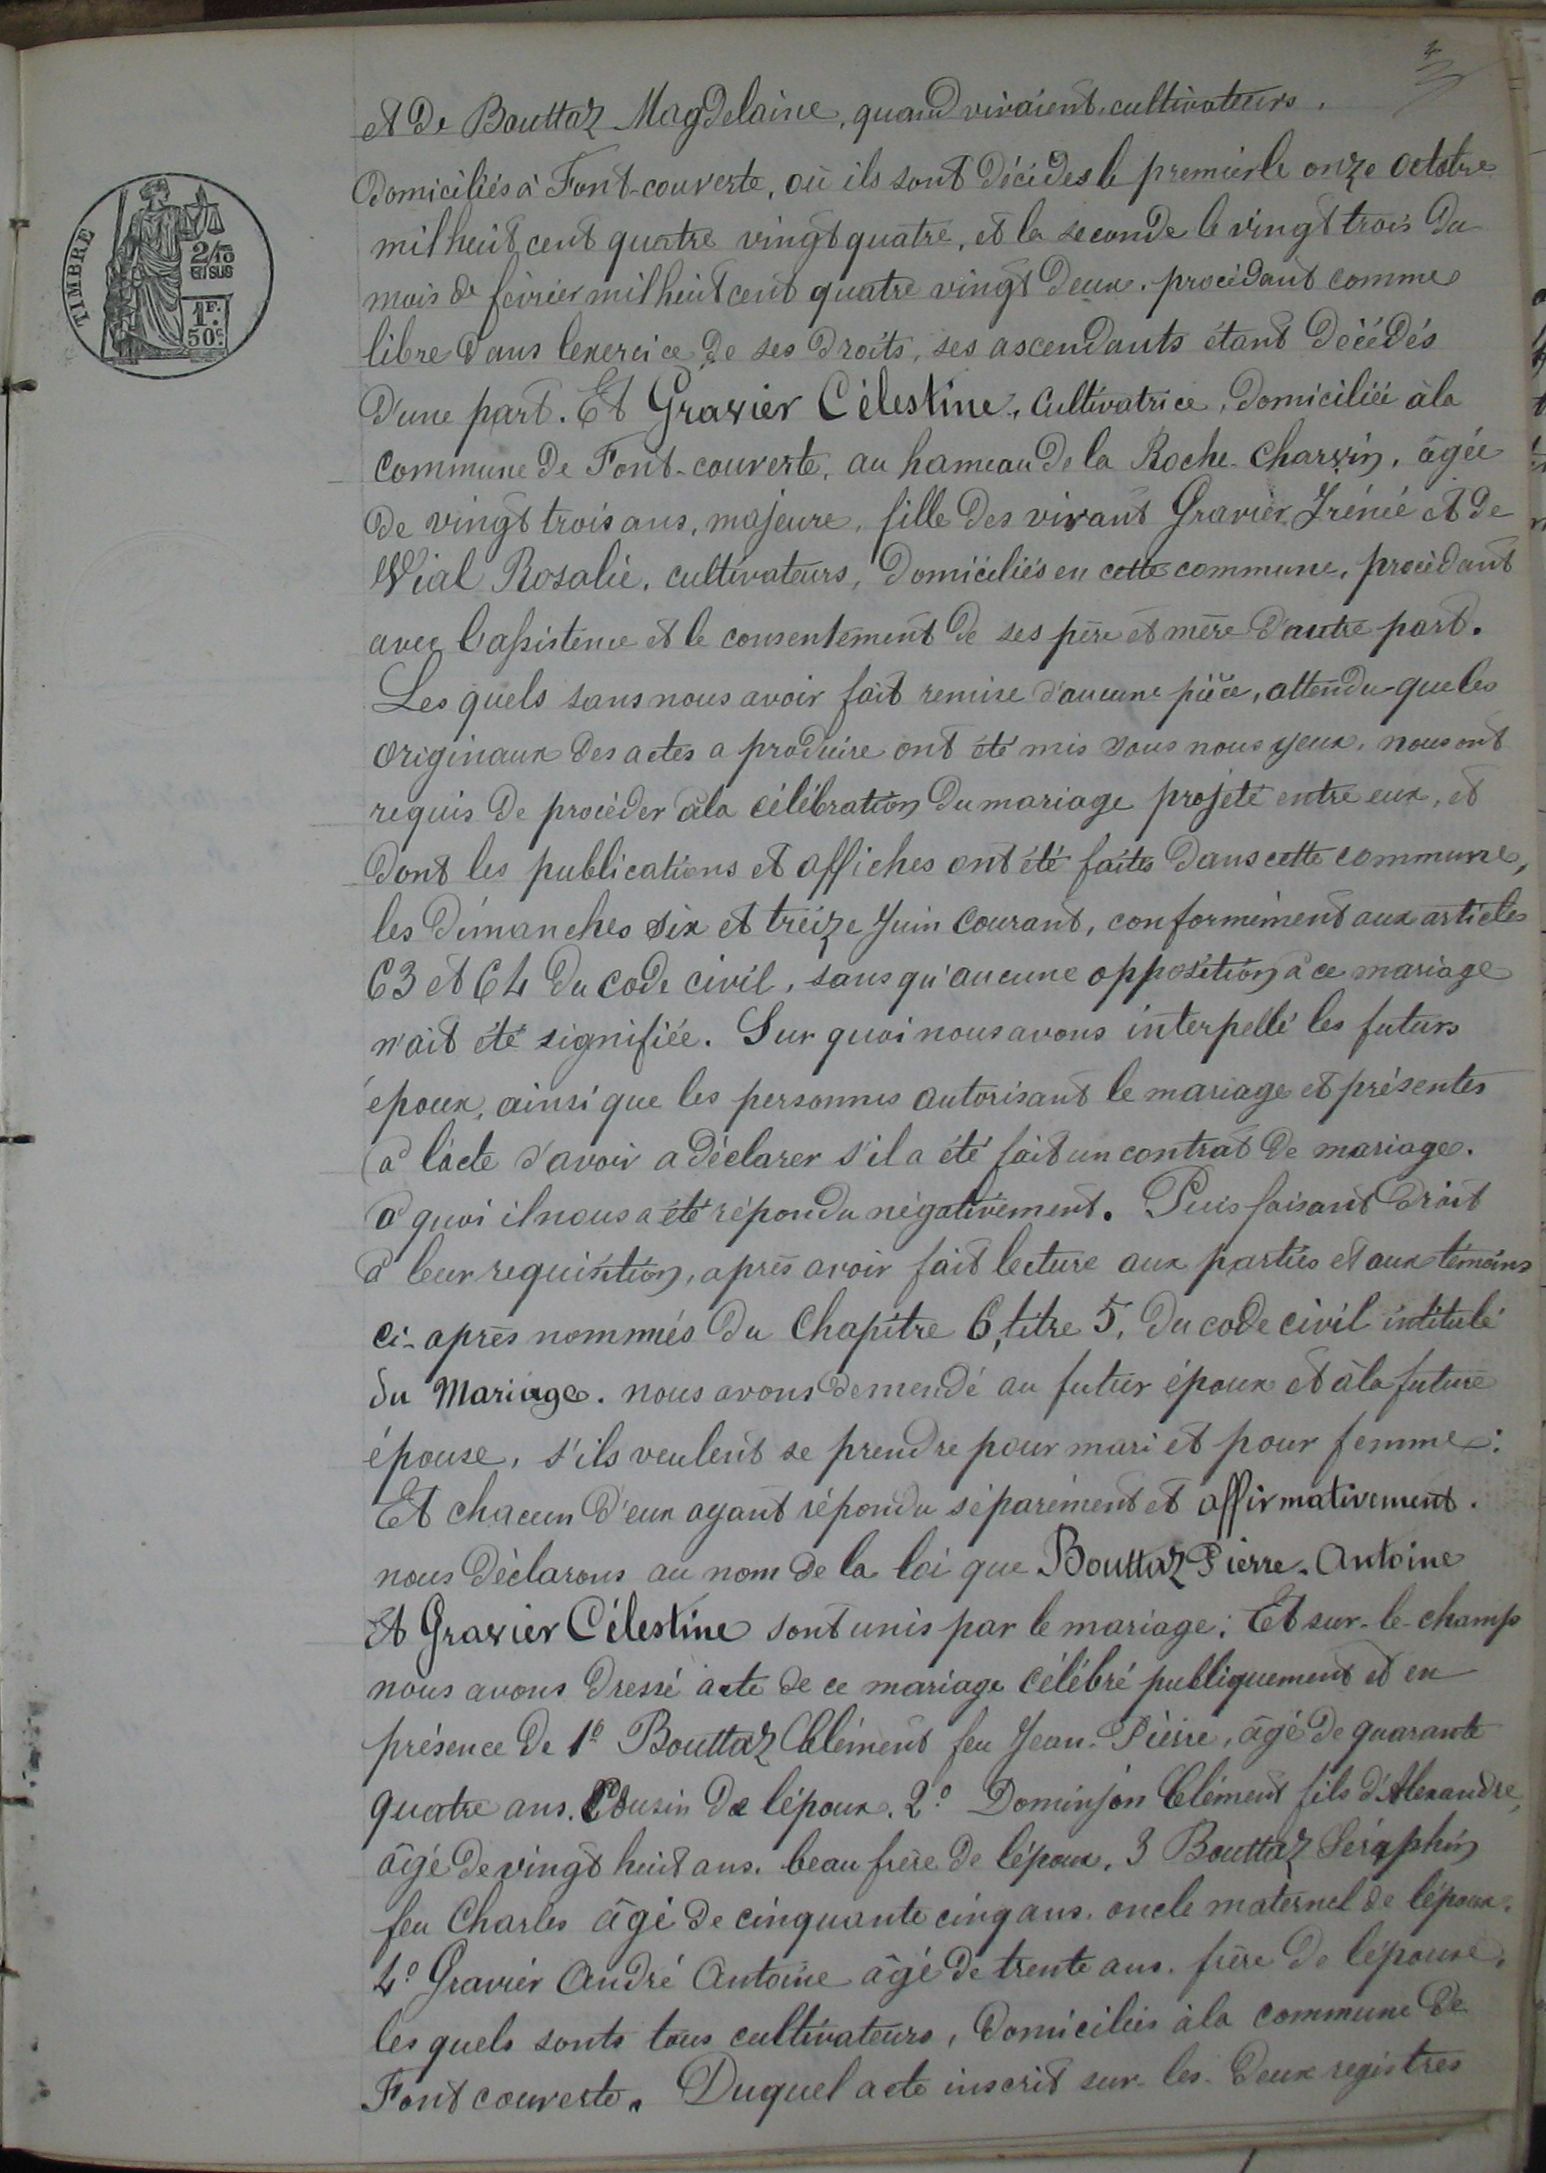 3
TIMBRE
2/10
EN SUS
1F.
50c.
et de Bouttaz Magdelaine, quand vivaient cultivateurs.
Domiciliés à Font-couverte, où ils sont décédés le premier le onze octobre
mil huit cent quatre vingt quatre, et la seconde le vingt trois du
mois de février mil huit cent quatre vingt deux, procédant comme
libre dans lexercice de ses droits, ses ascendants étant décédés
d'une part. Et Gravier Célestine, Cultivatrice, domiciliée à la
commune de Font-couverte, au hameau de la Roche-charvin, âgée
de vingt trois ans, majeure, fille des vivant Gravier Irénée et de
Vial Rosalie, cultivateurs, domiciliés en cette commune, procédant
avec l'assistence et le consentement de ses père et mère d'autre part.
Les quels sans nous avoir fait remise d'aucune pièce, attendu que les
originaux des actes a produire ont été mis sous nous yeux, nous ont
requis de procéder à la célébration du mariage projeté entre eux, et
dont les publications et affiches ont été faites dans cette commune,
les dimanches six et treize Juin courant, conformément aux articles
63 et 64 du code civil, sans qu'aucune opposition à ce mariage
n'ait été signifiée. Sur quoi nous avons interpellé les futurs
époux, ainsi que les personnes autorisant le mariage et présentes
à l'acte d'avoir a déclarer s'il a été fait un contrat de mariage.
à quoi il nous a été répondu négativement. Puis faisant droit
à leur requisition, après avoir fait lecture aux parties et aux témoins
ci-après nommés du Chapitre 6, titre 5, du code civil intitulé
du Mariage. nous avons demendé au futur époux et à la future
épouse, s'ils veulent se prendre pour mari et pour femme:
Et chacun d'eux ayant répondu séparément et affirmativement.
nous déclarons au nom de la loi que Bouttaz Pierre-Antoine
Et Gravier Célestine sont unis par le mariage: Et sur-le-champ
nous avons dressé acte de ce mariage célébré publiquement et en
présence de 1º Bouttaz Clément feu Jean-Pierre, âgé de quarante
quatre ans. Cousin de lépoux. 2º Dominjon Clément fils d'Alexandre,
âgé de vingt huit ans. beau frère de l'époux. 3 Bouttaz Séraphin
feu Charles âgé de cinquante cinq ans. oncle maternel de l'époux.
4º Gravier André Antoine âgé de trente ans. frère de l'épouse,
les quels sonts tous cultivateurs, domiciliés à la commune de
Font couverte. Duquel acte inscrit sur les deux registres